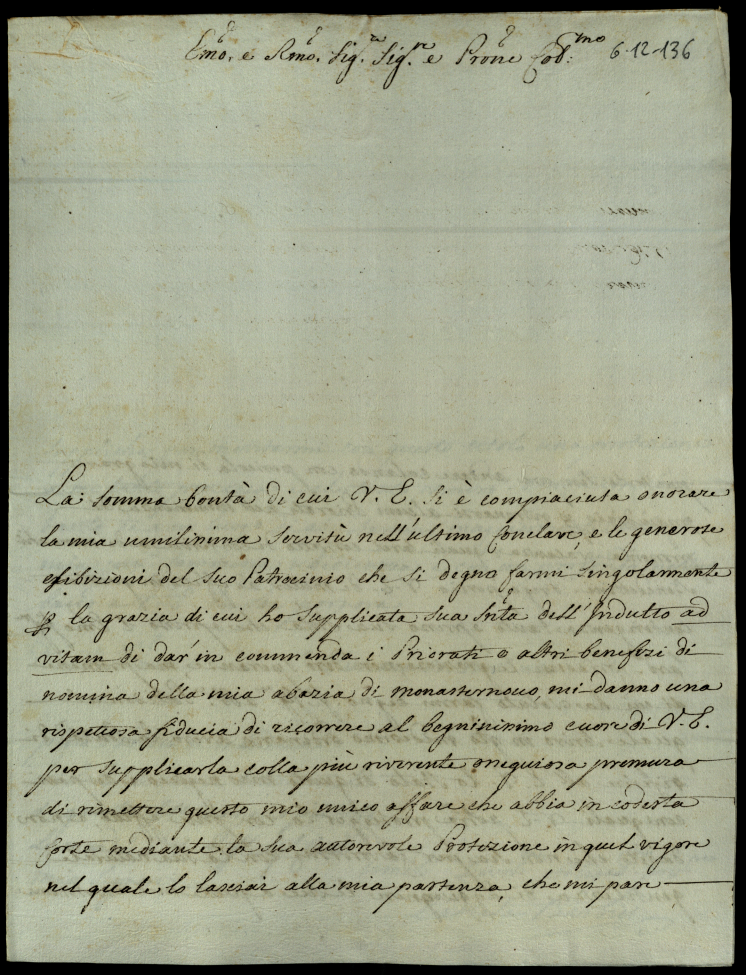 Emo. e Rmo. Sig.r Sig.re e Prone Col:mo 6-12-136
La somma bontà di cui V. E. si è compiaciuta onorare
la mia umilissima servitù nell'ultimo Conclave, e le generose
esibizioni del suo Patrocinio che si degnò farmi singolarmente
la grazia di cui ho supplicata sua Sntà dell'Indulto ad
vitam di dar' in commenda i Priorati o altri benefizi di
nomina della mia abazia di monasternovo, mi danno una
rispettosa fiducia di ricorrere al begnissimo cuore di V. E.
per supplicarla colla più riverente ossequiosa premura
di rimettere questo mio unico affare che abbia in codesta
Corte mediante la sua autorevole Protezione in quel vigore
nel quale lo lasciai alla mia partenza, che mi pare